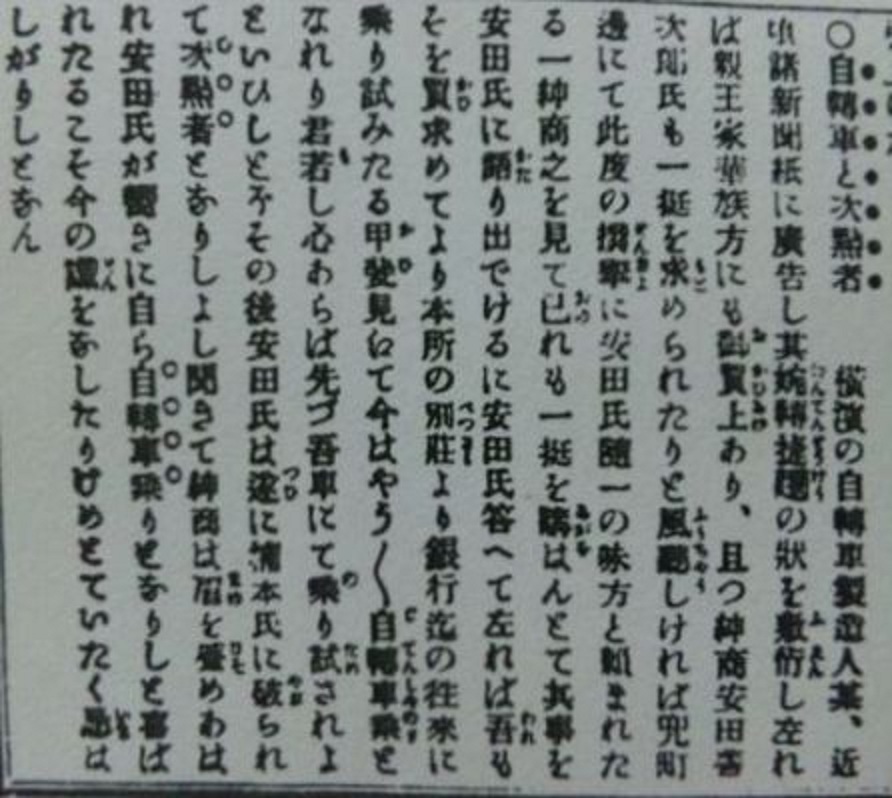 ○自轉車と次點者　橫濱の自轉車製造人某、近
諸新聞紙に廣告し其婉轉捷の狀を敷衍し左れ
ば親王家華族方にも御買上あり、且つ紳商安田善
次郎氏も一挺を求められたりと風聽しければ兜町
邊にて此度の撰擧に安田氏隨一の味方と賴まれた
る一紳商之を見て已れも一挺を購はんとて其事を
安田氏に語り出でけるに安田氏答へて左れば吾も
そを買求めてより本所の別莊より銀行迄の往來に
乘り試みたる甲斐見はて今はやう〱自轉車乘と
なれり君若し心あらば先づ吾車にて乘り試されよ
といひしとぞその後安田氏は遂に浦本氏に破られ
て次點者となりしよし聞きて紳商は眉を顰めあは
れ安田氏が響きに自ら自轉車乘りとなりしと喜ば
れたるこそ今の讖をなしたりけめとていたく忌は
しがりしとなん